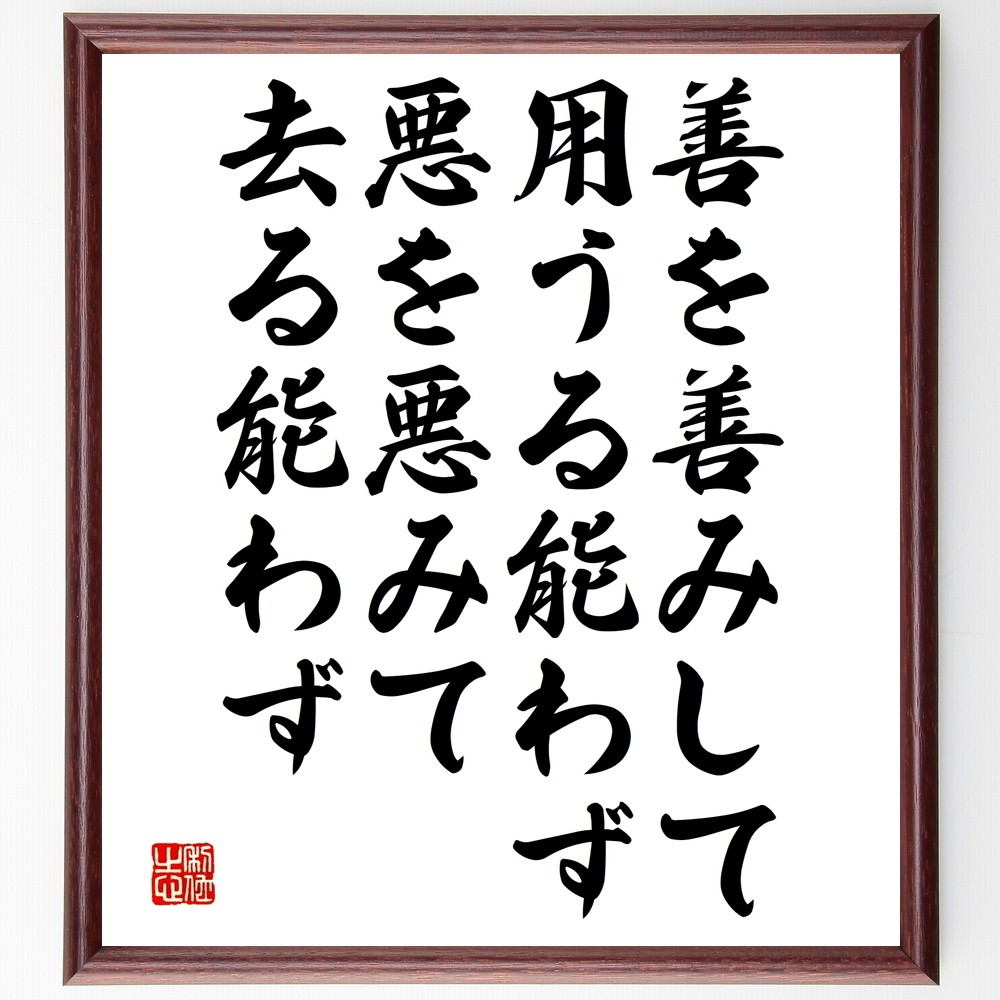 善を善みして
用うる能わず
悪を悪みて
去る能わず